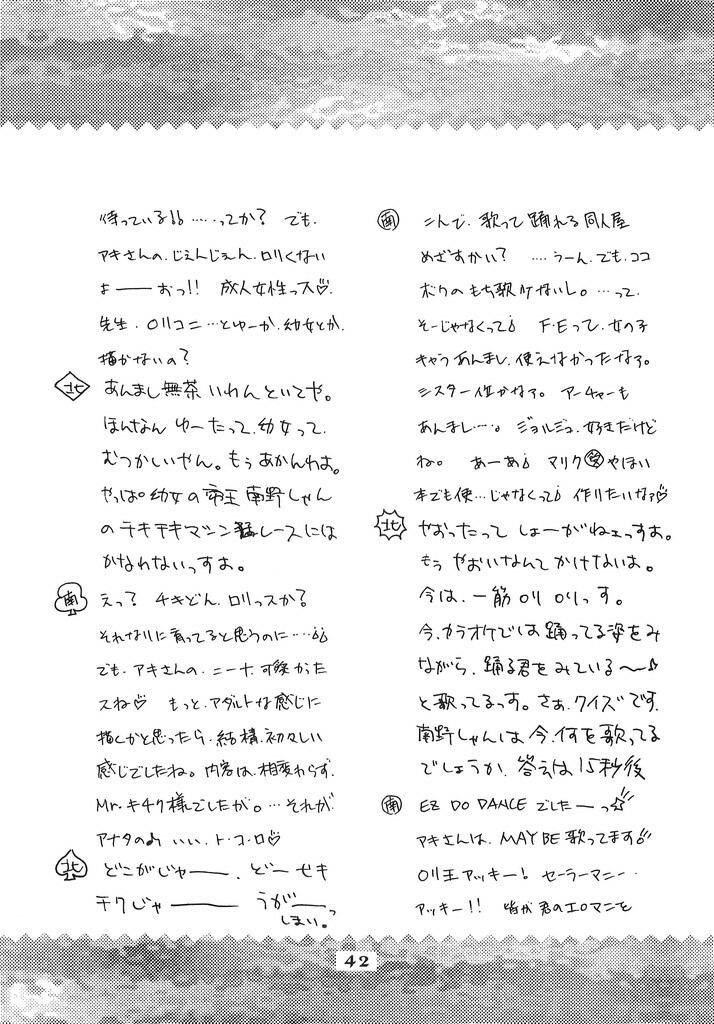 南 こんで、歌って踊れる同人屋
めざすかい? ……うーん、でも、ココ
ボクのもち歌ケないし。…って、
そーじゃなくって! F・Eって、女の子
キャラあんまし、使えなかったなァ。
シスター位かなァ。アーチャーも
あんまし…。ジョルジュ、好きだけど
ね。あーあ! マリク受やほい
本でも使…じゃなくって! 作りたいなァ♡
北 やおったって しょーがねェっすよ。
もう やおいなんてかけないよ。
今は、一筋ロリ ロリっす。
今、カラオケでは 踊ってる姿をみ
ながら、踊る君をみている〜♪
と歌ってるっす。さぁ、クイズです、
南野しゃんは、今、何を歌ってる
でしょうか、答えは15秒後
南 EZ DO DANCE でしたーっ☆
アキさんは、MAYBE歌ってます!!
ロリ王アッキー! セーラーマニー・
アッキー!! 皆が君のエロマンを
待っている!! ……ってか? でも、
アキさんの、じぇんじぇん、ロリくない
よ――おっ!! 成人女性っス♡、
先生、ロリコニ…とゆーか、幼女とか、
描かないの?
北 あんまし無茶いわんといてや。
ほんなん ゆーたって、幼女って、
むつかしいやん。もぅ あかんわよ。
やっぱ幼女の帝王南野しゃん
のチキチキマシン猛レースには
かなわないっすよ。
南 えっ? チキどん、ロリっスか?
それなりに育ってると思うのに……!!
でも、アキさんの、ニーナ、可愛かた
スね♡ もっと、アダルトな感じに
描くかと思ったら、結構、初々しい
感じでしたね。内容は、相変わらず、
Mr.キチク様でしたが。…それが、
アナタのみ いい、ト・コ・ロ♡
北 どこがじゃ――、どーせキ
チクじゃ―― うが――っ
しまい。
42